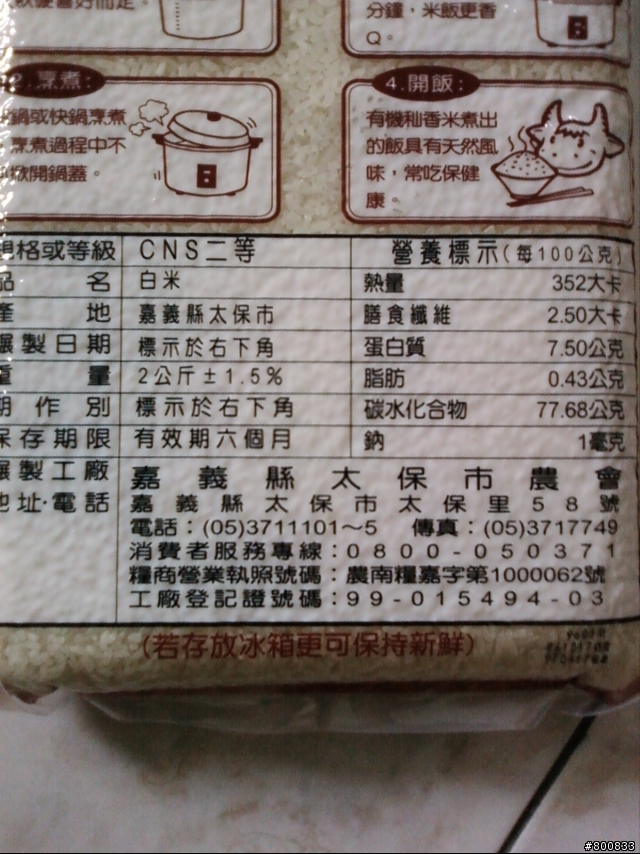 分鐘，米飯更香
Q。
2.烹煮：
鍋或快鍋烹煮
烹煮過程中不
掀開鍋蓋。
4.開飯：
有機秈香米煮出
的飯具有天然風
味，常吃保健
康。
規格或等級 CNS二等
品名 白米
產地 嘉義縣太保市
碾製日期 標示於右下角
重量 2公斤±1.5%
期作別 標示於右下角
保存期限 有效期六個月
營養標示(每100公克)
熱量 352大卡
膳食纖維 2.50大卡
蛋白質 7.50公克
脂肪 0.43公克
碳水化合物 77.68公克
鈉 1毫克
碾製工廠 嘉義縣太保市農會
地址·電話 嘉義縣太保市太保里58號
電話：(05)3711101～5 傳真：(05)3717749
消費者服務專線：0800-050371
糧商營業執照號碼：農南糧嘉字第1000062號
工廠登記證號碼：99-015494-03
(若存放冰箱更可保持新鮮)
#800833